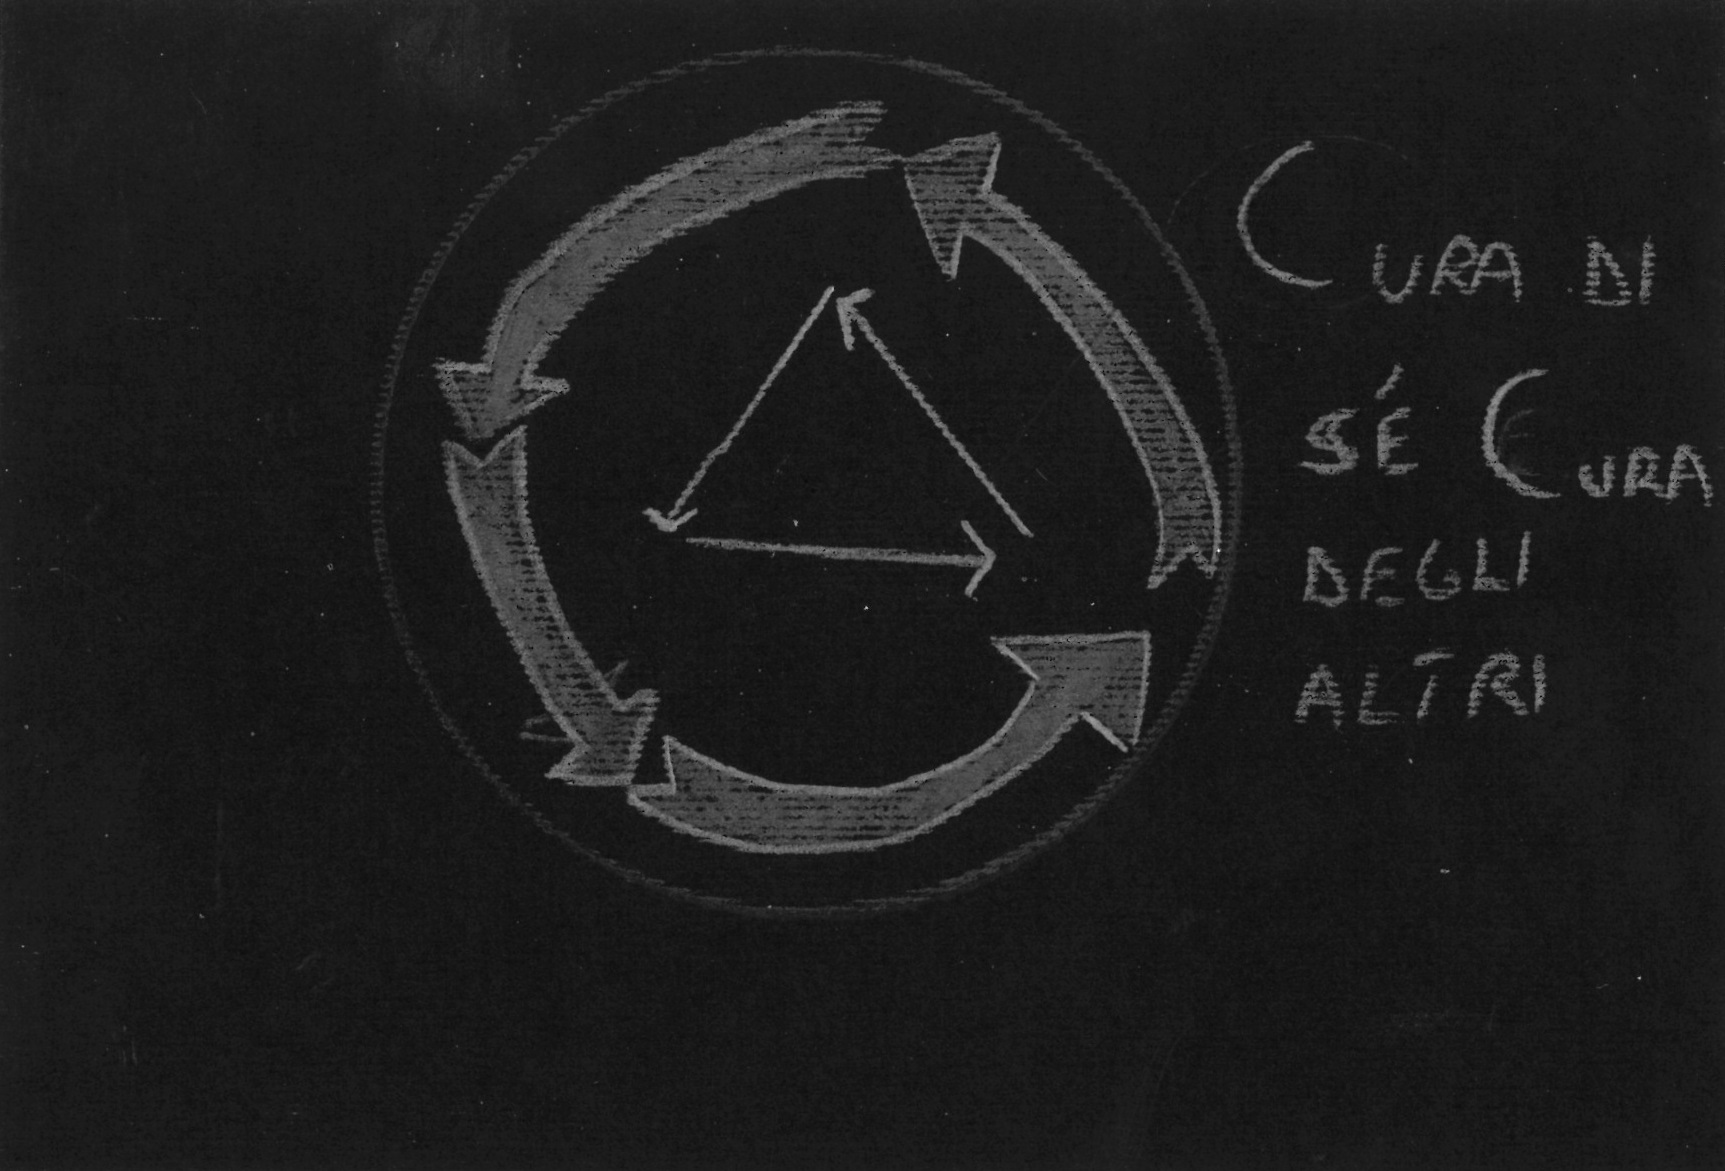 CURA DI
SÉ CURA
DEGLI
ALTRI